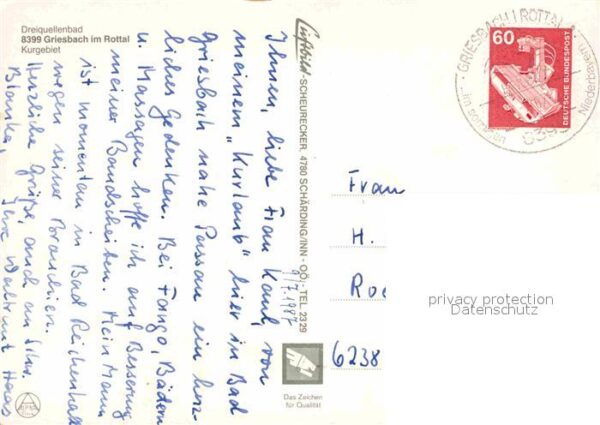 Dreiquellenbad
8399 Griesbach im Rottal
Kurgebiet
Ihnen, liebe Frau Kanl, von
meinem "Kurlaub" hier in Bad
Griesbach nahe Passau ein herz-
liches Gedenken. Bei Fango, Bädern
u. Massagen hoffe ich auf Besserung
meiner Bandscheiben. Mein Mann
ist momentan in Bad Reichenhall
wegen seiner Bronchien.
Herzliche Grüße, auch an Frau
Blanka, Ihre Waltraut Haas
Luftbild-SCHEURECKER, 4780 SCHÄRDING/INN - OÖ - TEL. 23 29
9/7.1987
Das Zeichen
für Qualität
GRIESBACH I ROTTAL
im sonnigen Niederbayern
8399
60
DEUTSCHE BUNDESPOST
Frau
H.
Roe
6238
privacy protection
Datenschutz